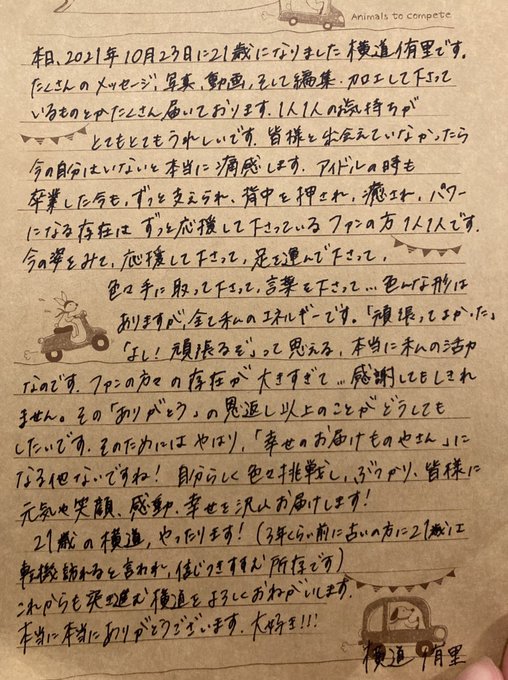 Animals to compete
本日、2021年10月23日に21歳になりました横道侑里です。
たくさんのメッセージ、写真、動画、そして編集・加工して下さって
いるものとかたくさん届いております。1人1人のお気持ちが
とてもとてもうれしいです。皆様と出会えていなかったら
今の自分はいないと本当に痛感します。アイドルの時も
卒業した今も、ずっと支えられ、背中を押され、癒され、パワー
になる存在は ずっと応援して下さっている ファンの方 1人1人です。
今の姿をみて、応援して下さって、足を運んで下さって、
色々手に取って下さって、言葉を下さって…色んな形は
ありますが、全て私のエネルギーです。「頑張ってよかった」
「よし!頑張るぞ」って思える、本当に私の活力
なのです。ファンの方々の存在が大きすぎて…感謝してもしきれ
ません。その「ありがとう」の恩返し以上のことがどうしても
したいです。そのためにはやはり、「幸せのお届けものやさん」に
なる他ないですね! 自分らしく色々挑戦し、ぶつかり、皆様に
元気や笑顔、感動、幸せを沢山お届けします!
21歳の横道、やったります!(3年くらい前に占いの方に21歳に
転機訪れると言われ、信じつきすすむ所存です)
これからも突き進む横道をよろしくおねがいします。
本当に本当にありがとうございます。大好き!!!
横道 侑里